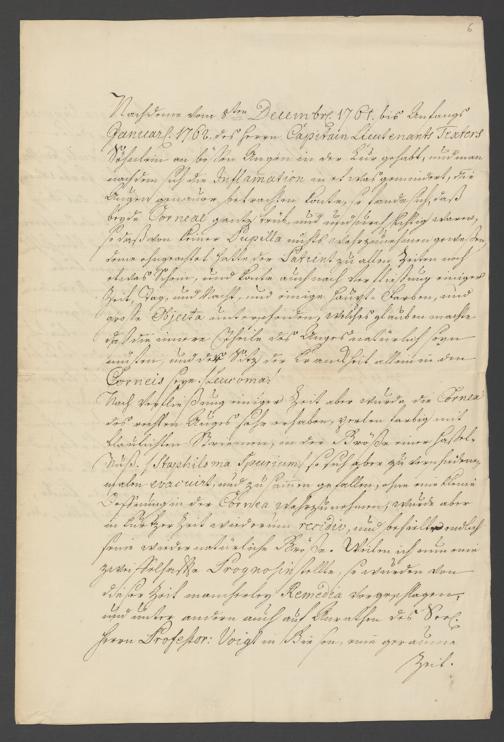 6
Nachdeme vom 8ten Decembr. 1761. bis Anfangs
Januarÿ. 1762. des Herrn Capitain Lieutenants Textors
Söhnlein an bösen Augen in der Cur gehabt, und man
nachdem sich die Inflamation in etwas gemindert, die
Augen genauer betrachten konte, so fande sich, daß
beyde Corneae gantz trüb, und undurchsichtig waren,
so daß von keiner Pupilla nichts wahrzunehmen gewesen
deme ohngeachtet hatte der Patient zu allen Zeiten noch
etwas Schein, und konte auch nach Verfließung einiger
Zeit, Tag, und Nacht, und einige Farben, und
große Objecta unterscheiden, welches glauben machte
daß die innere Theile des Auges natürlich seyn
müsten, und der Sitz der Kranckheit allein in den
Corneis seye. /: Leucoma:/
Nach Verfließung einiger Zeit aber wurde die Cornea
des rechten Auges sehr erhaben, perlen farbig mit
blaulichten Striemen, in der Größe einer Hasel-
Nuß. /: Staphiloma Spurium:/ so sich aber zu verschiedenen
malen evacuirt, und zusammen gefallen, ohne eine kleine
Oeffnung in der Cornea wahrzunehmen, wurde aber
in kurtzer Zeit wiederum recidiv, und behielte endlich
seine wiedernatürliche Größe. Weilen ich nun eine
zweifelhaffte Prognosin stellte, so wurden von
dieser Zeit mancherley Remedia vorgeschlagen,
und unter andern auch auf Anrathen des Seel.
Herrn Professor: Voigt in Giesen, eine geraume
Zeit.